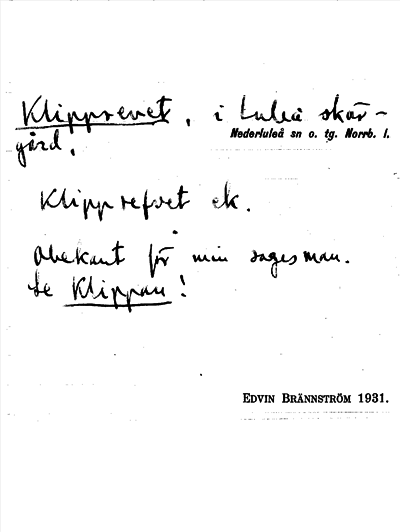 Klipprevet, i Luleå skär-
Nederluleå sn o. tg. Norrb. l.
gård.
Klipprefvet ek.
Obekant för min sagesman.
Se Klippan!
EDVIN BRÄNNSTRÖM 1931.